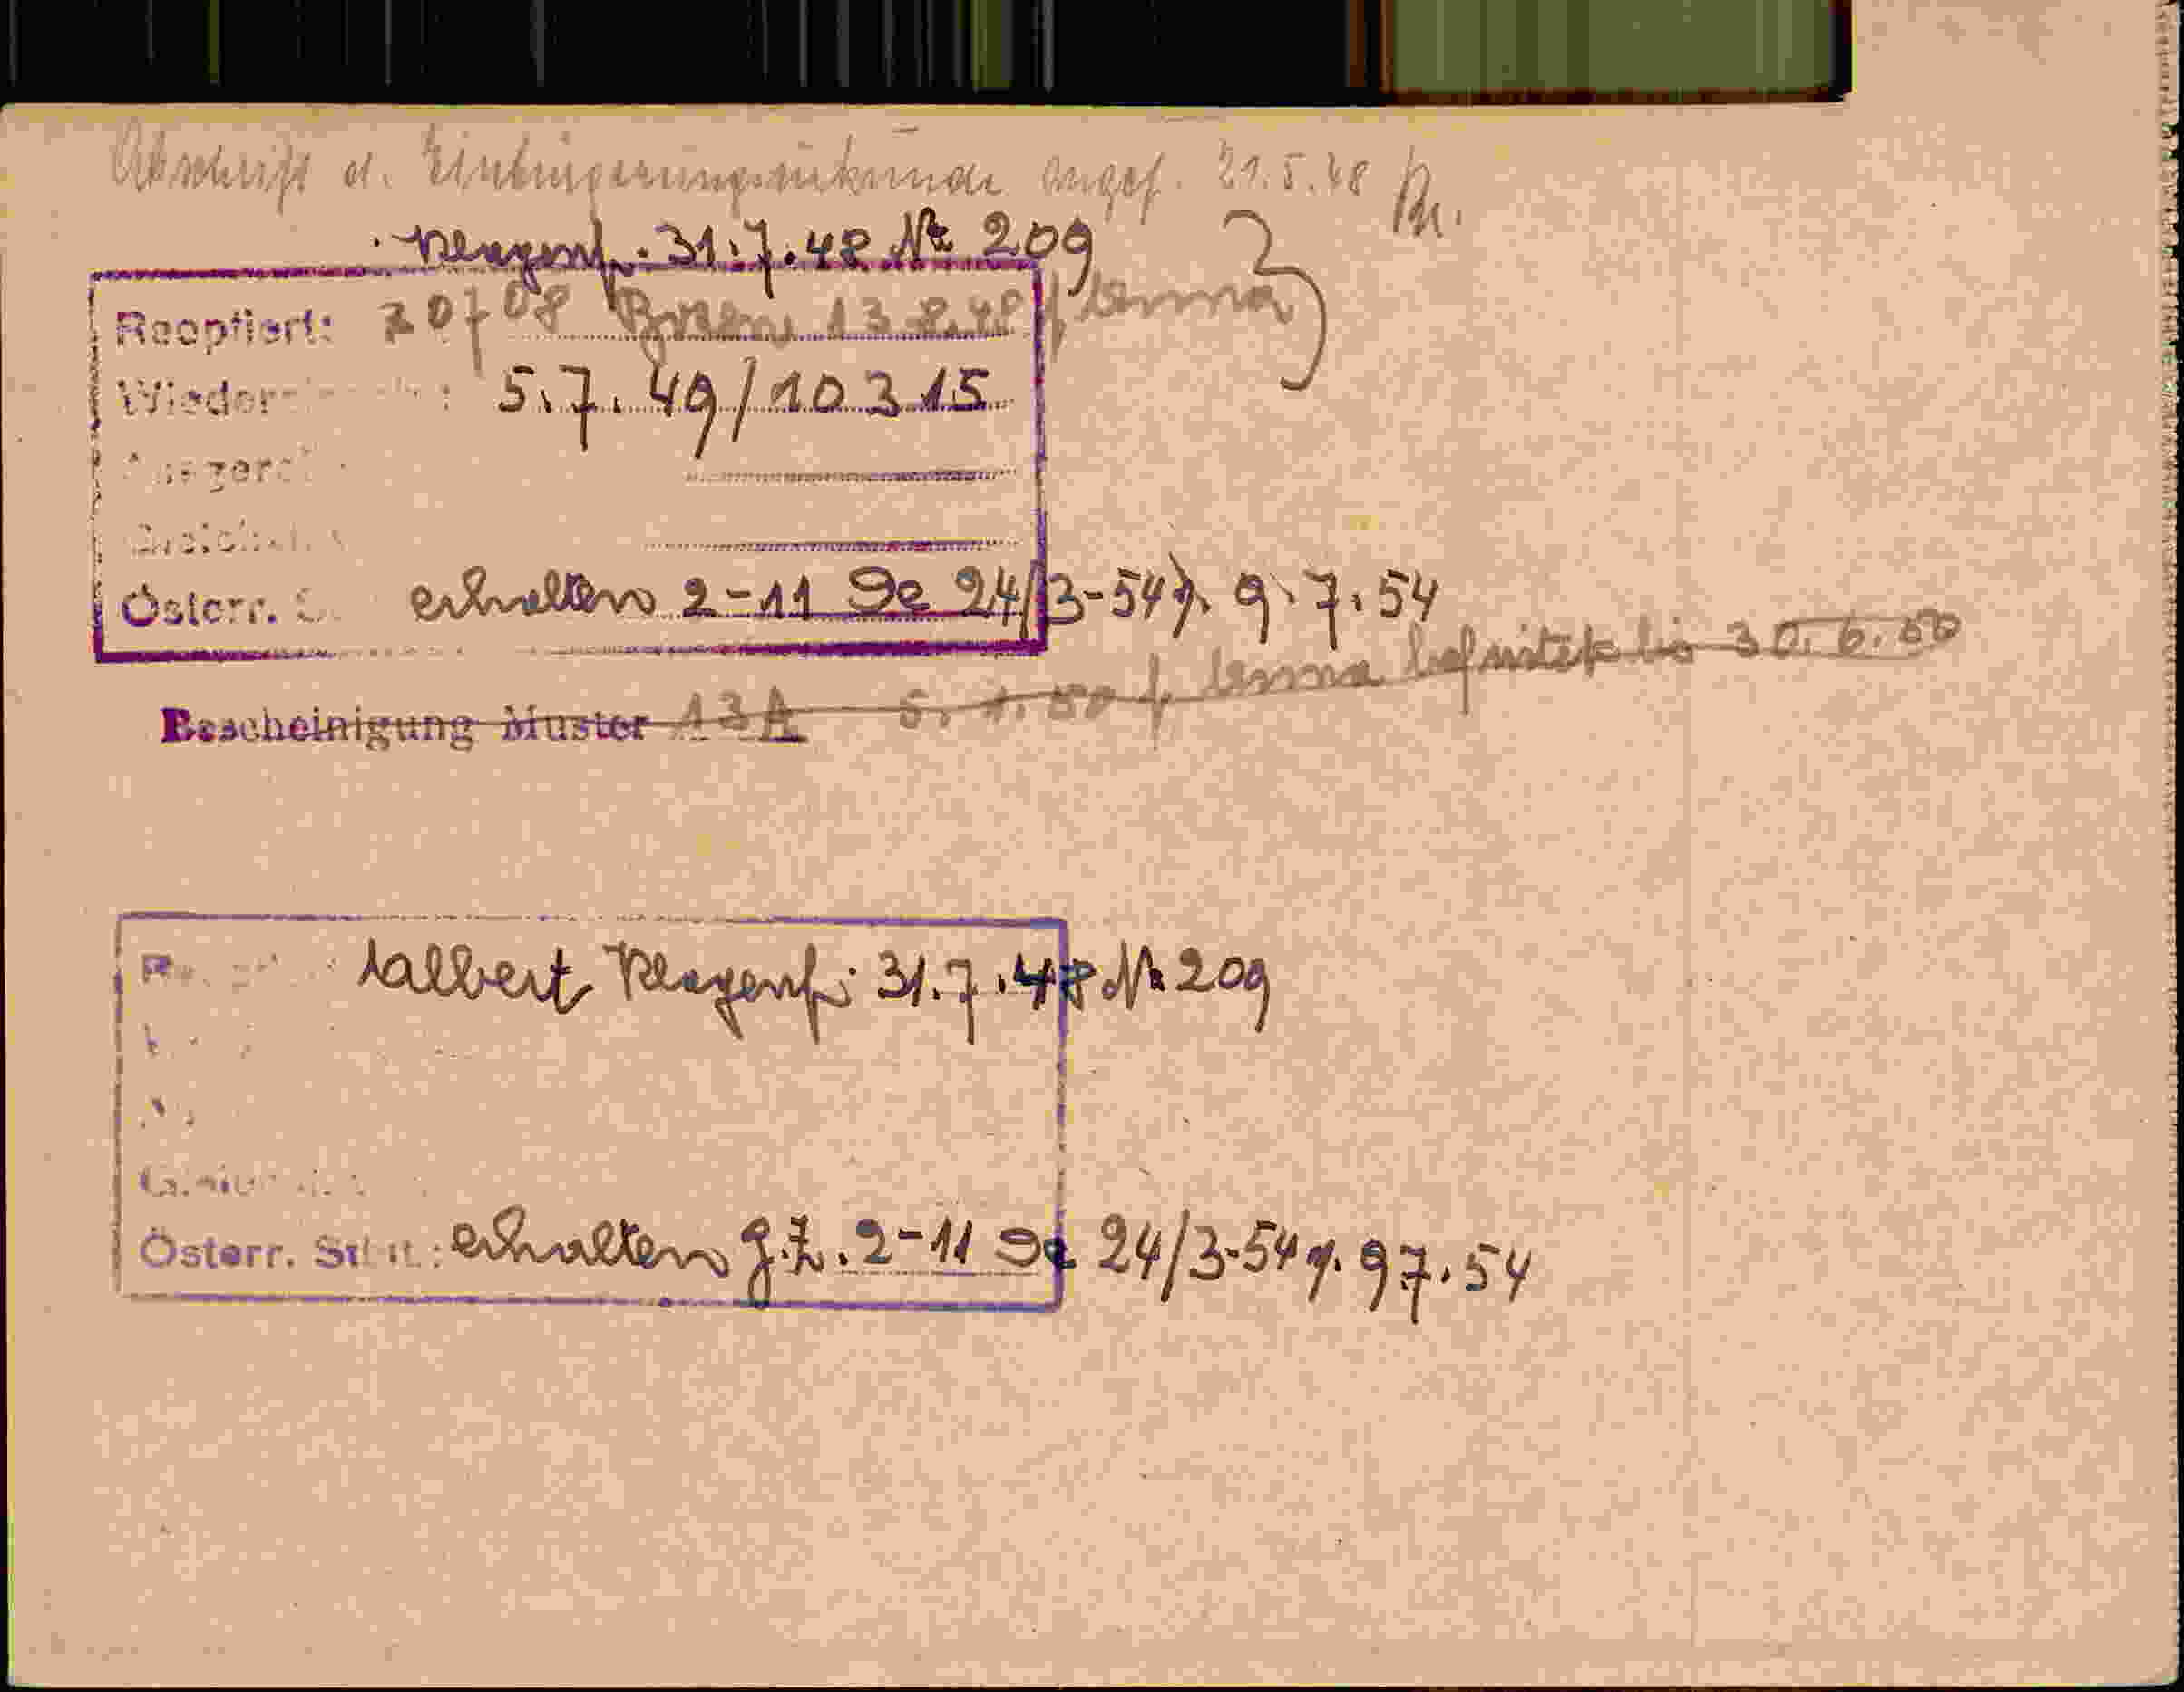 Abschrift d. Einbürgerungsurkunde angef. 21.5.48
Klagenf. 31.7.48 № 209
Reoptiert: 20708 Bozen 13.8.48 f. Emma
5.7.49/10315
Österr. erhalten 2-11 De 24/3-54 v. 9.7.54
Bescheinigung Muster 13A 5.1.50 f. Emma befristet bis 30.6.50
Adalbert Klagenf. 31.7.48 № 209
Österr. erhalten g.Z. 2-11 De 24/3-54 v. 9 7.54